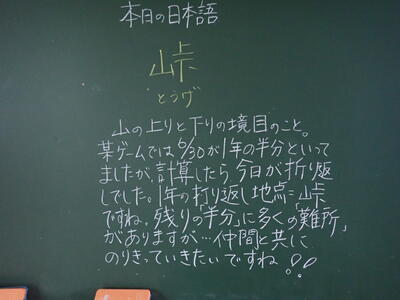 本日の日本語
峠
とうげ
山の上りと下りの境目のこと。
某ゲームでは6/30が1年の半分といって
ましたが、計算したら今日が折り返
しでした。1年の打り返し地点=峠
ですね。残りの「半分」に多くの「難所」
がありますが…仲間と共に
のりきっていきたいですね!!